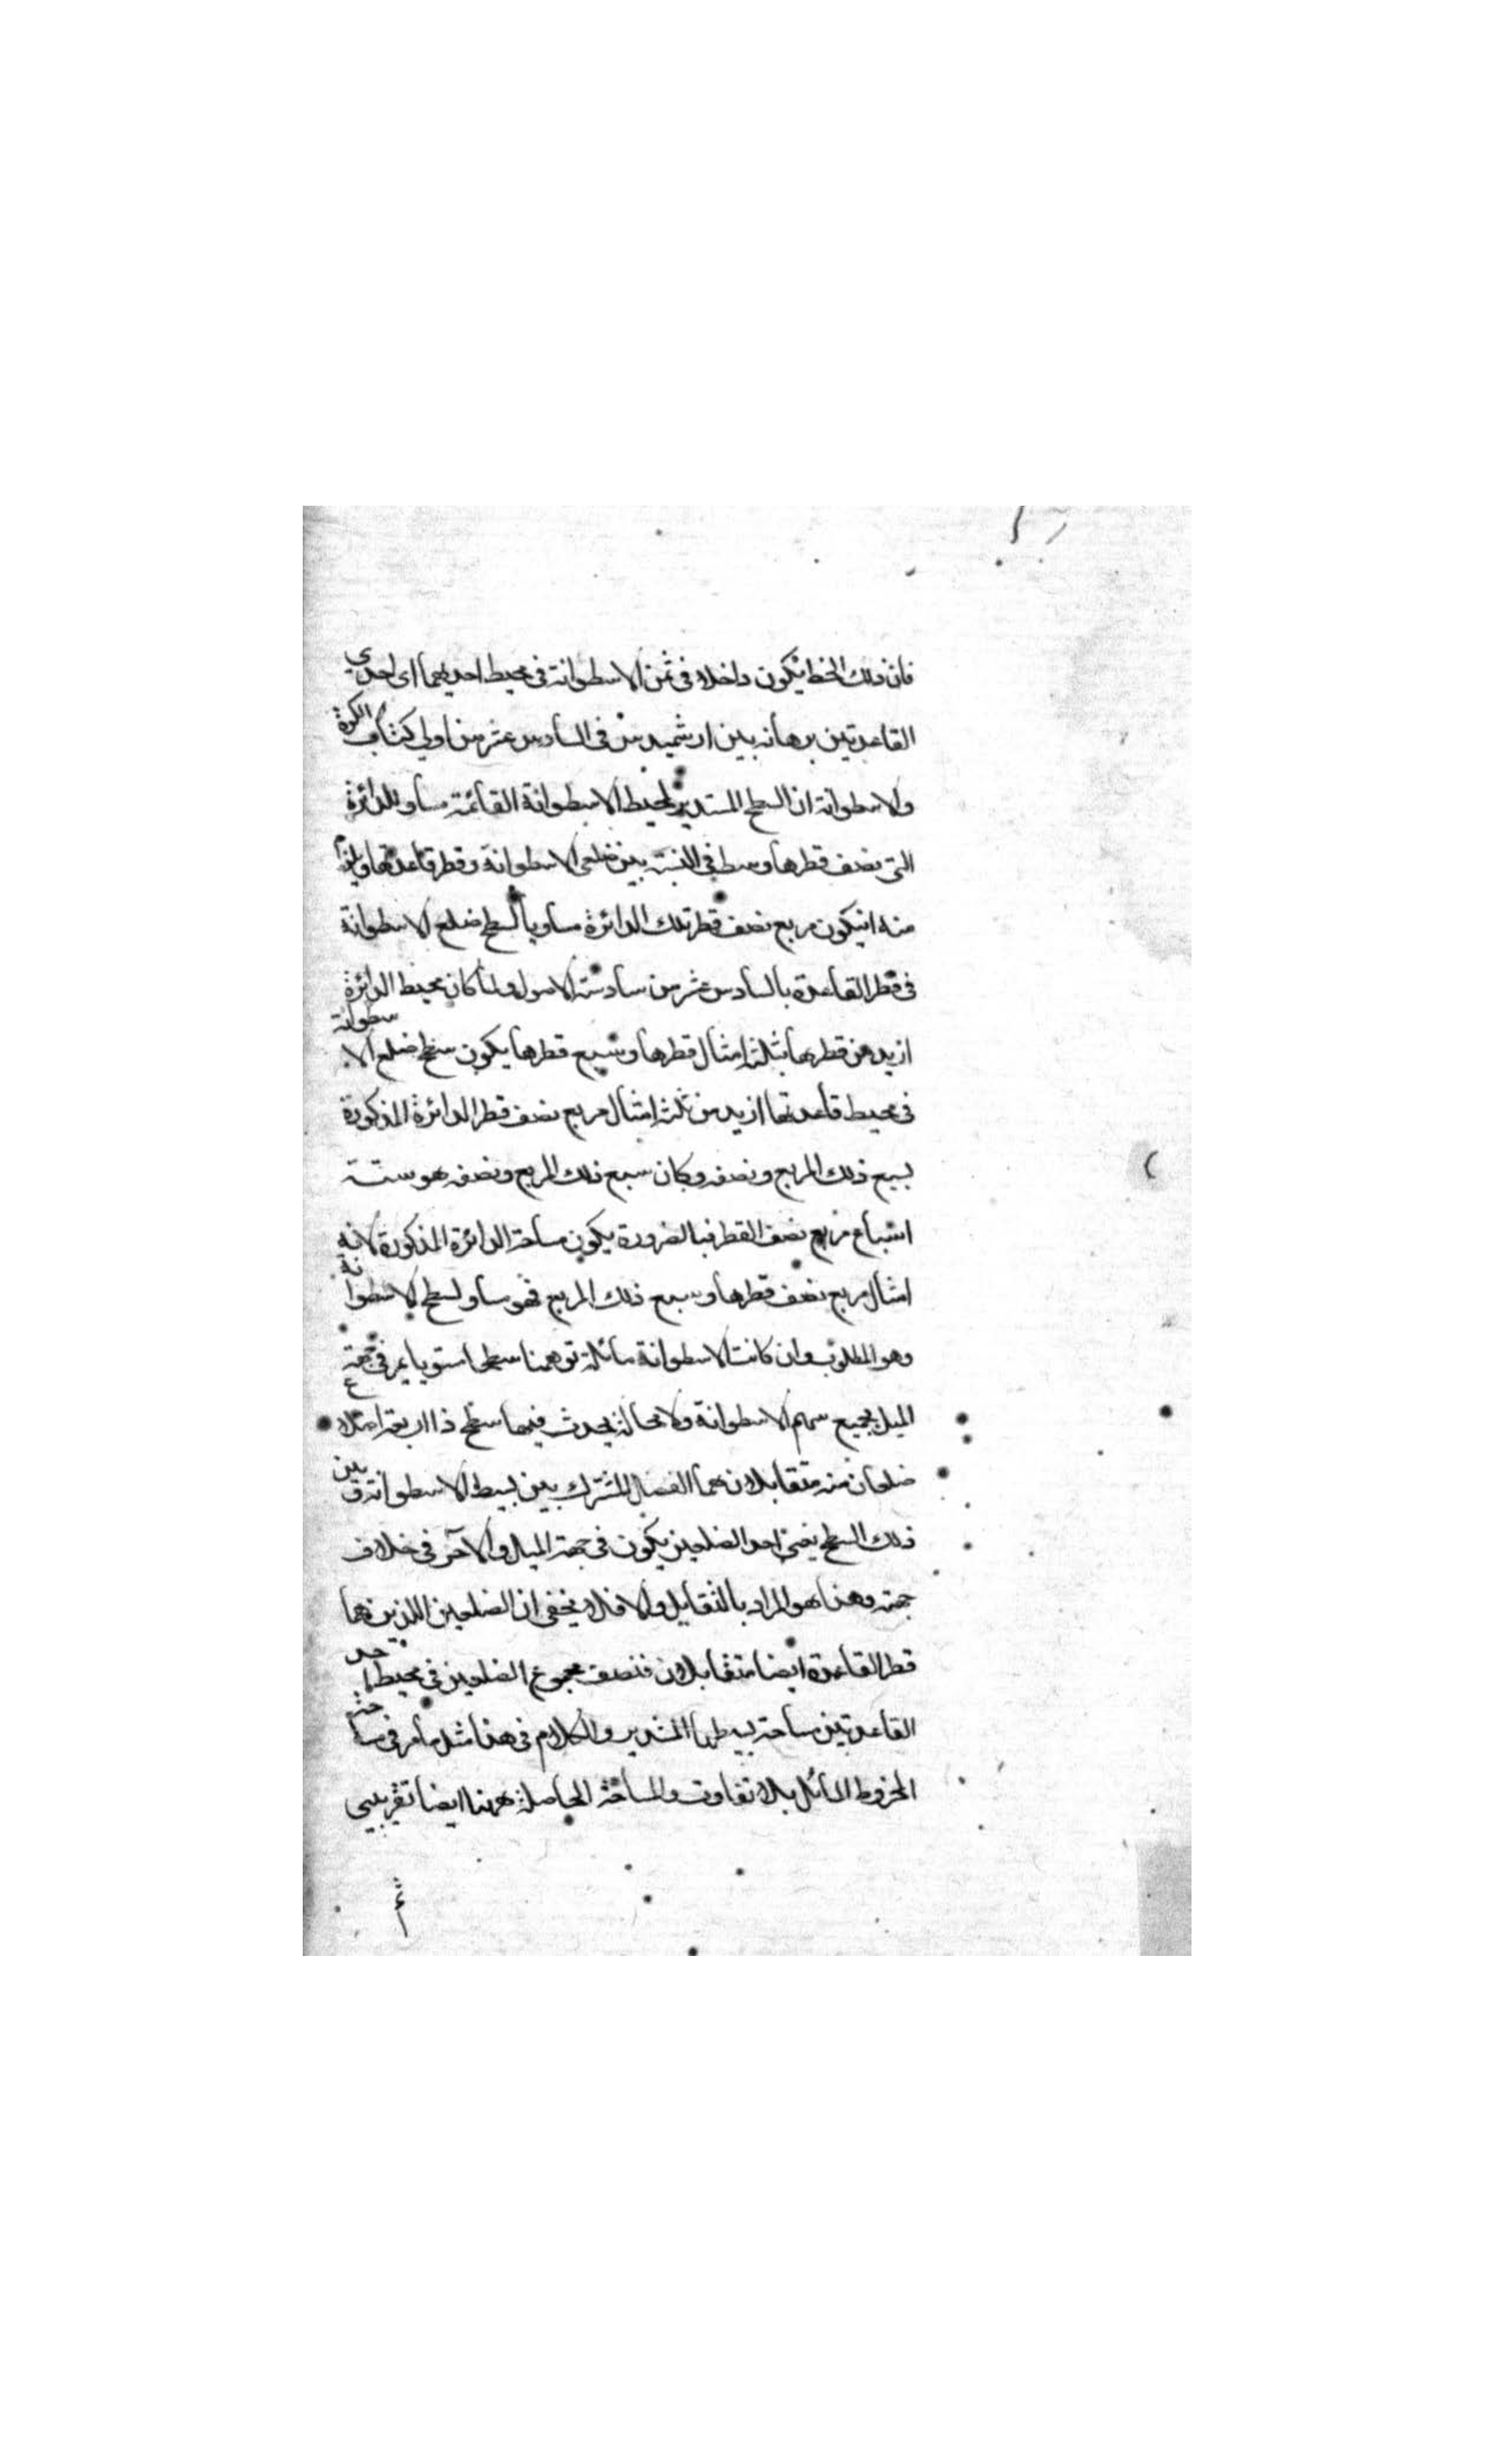 فان ذلك الخط يكون داخلا في ثخن الاسطوانة في محيط احديهما اى احدى
القاعدتين برهانه بين ارشميدس في السادس عشر من اولي كتاب الكرة
والاسطوانة ان السطح المستدير لمحيط الاسطوانة القائمة مساو للدائرة
التى نصف قطرها وسط في النسبة بين ضلعى الاسطوانة وقطر قاعدتها ويلزم
منه ان يكون مربع نصف قطر تلك الدائرة مساويا لسطح ضلع الاسطوانة
في قطر القاعدة بالسادس عشر من سادسة الاصول ولما كان محيط الدائرة
ازيد من قطرها بثلثة امثال قطرها وسبع قطرها يكون سطح ضلع الاسطوانة
في محيط قاعدتها ازيد من ثلثة امثال مربع نصف قطر الدائرة المذكورة
بسبع ذلك المربع ونصفه وكان سبع ذلك المربع ونصفه هو ستة
اسباع مربع نصف القطر فبالضرورة يكون مساحة الدائرة المذكورة لانه
امثال مربع نصف قطرها وسبع ذلك المربع فهو مساو لسطح الاسطوانة
وهو المطلوب وان كانت الاسطوانة مائلة توهمنا سطحا مستويا يمر في جهة
الميل بجميع سهم الاسطوانة ولا محالة يحدث فيها سطح ذا اربعة اضلاع
ضلعان منه متقابلان هما الفصل المشترك بين بسيط الاسطوانة وبين
ذلك السطح يعنى احد الضلعين يكون في جهة الميل والآخر في خلاف
جهته وهذا هو المراد بالتقابل والا فلا يخفى ان الضلعين اللذين هما
قطر القاعدة ايضا متقابلان فنصف مجموع الضلعين في محيط احد
القاعدتين مساحة بسيطها المستدير والكلام في هذا مثل ما مر في مساحة
المخروط المائل بلا تفاوت والمساحة الحاصلة ههنا ايضا تقريبى